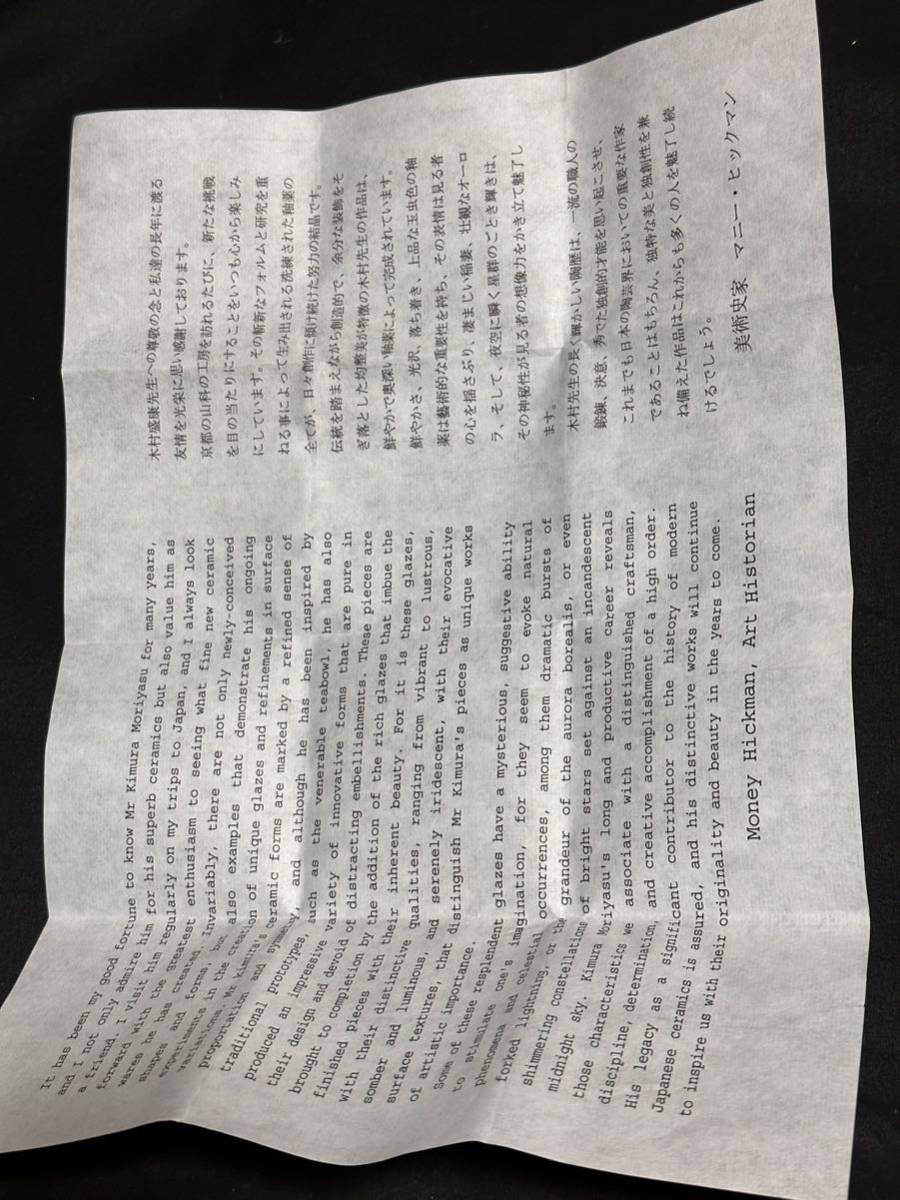 It has been my good fortune to know Mr Kimura Moriyasu for many years,
and I not only admire him for his superb ceramics but also value him as
a friend. I visit him regularly on my trips to Japan, and I always look
forward with the greatest enthusiasm to seeing what fine new ceramic
wares he has created. invariably, there are not only newly-conceived
shapes and forms, but also examples that demonstrate his ongoing
experiments in the creation of unique glazes and refinements in surface
variations. Mr Kimura's ceramic forms are marked by a refined sense of
proportation and symmetry, and although he has been inspired by
traditional prototypes, such as the venerable teabowl, he has also
produced an impressive variety of innovative forms that are pure in
their design and devoid of distracting embellishments. These pieces are
brought to completion by the addition of the rich glazes that imbue the
finished pieces with their inherent beauty. For it is these glazes,
with their distinctive qualities, ranging from vibrant to lustrous,
somber and luminous, and serenely iridescent, with their evocative
surface textures, that distinguish Mr Kimura's pieces as unique works
of artistic importance.
Some of these resplendent glazes have a mysterious, suggestive ability
to stimulate one's imagination, for they seem to evoke natural
phenomena and celestial occurrences, among them dramatic bursts of
forked lightning, or the grandeur of the aurora borealis, or even
shimmering constellations of bright stars set against an incandescent
midnight sky. Kimura Moriyasu's long and productive career reveals
those characteristics we associate with a distinguished craftsman,
discipline, determination, and creative accomplishment of a high order.
His legacy as a significant contributor to the history of modern
Japanese ceramics is assured, and his distinctive works will continue
to inspire us with their originality and beauty in the years to come.
Money Hickman, Art Historian
木村盛康先生への尊敬の念と私達の長年に渡る
友情を光栄に思い感謝しております。
京都の山科の工房を訪れるたびに、新たな挑戦
を目の当たりにすることをいつも心から楽しみ
にしています。その斬新なフォルムと研究を重
ねる事によって生み出される洗練された釉薬の
全てが、日々創作に傾け続けた努力の結晶です。
伝統を踏まえながら創造的で、余分な装飾をそ
ぎ落とした均整美が特徴の木村先生の作品は、
鮮やかで奥深い釉薬によって完成されています。
鮮やかさ、光沢、落ち着き、上品な玉虫色の釉
薬は藝術的な重要性を持ち、その表情は見る者
の心を揺さぶり、凄まじい稲妻、壮観なオーロ
ラ、そして、夜空に瞬く星群のごとき輝きは、
その神秘性が見る者の想像力をかき立て魅了し
ます。
木村先生の長く輝かしい陶歴は、一流の職人の
鍛錬、決意、秀でた独創的才能を思い起こさせ、
これまでも日本の陶芸界においての重要な作家
であることはもちろん、独特な美と独創性を兼
ね備えた作品はこれからも多くの人を魅了し続
けるでしょう。
美術史家 マニー・ヒックマン